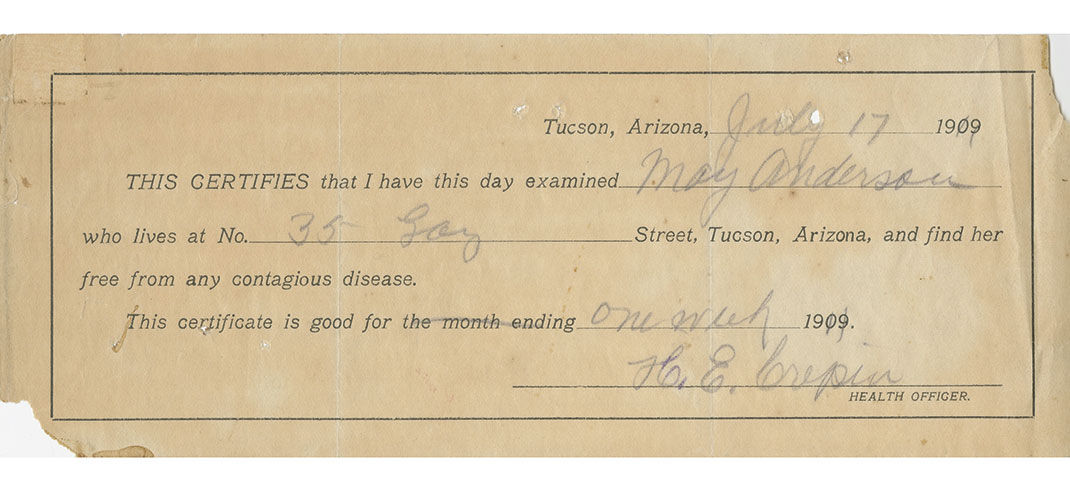 Tucson, Arizona, July 17 1909
THIS CERTIFIES that I have this day examined May Anderson
who lives at No. 35 Gay Street, Tucson, Arizona, and find her
free from any contagious disease.
This certificate is good for the month ending one week 1909.
H. E. Crepin
HEALTH OFFICER.